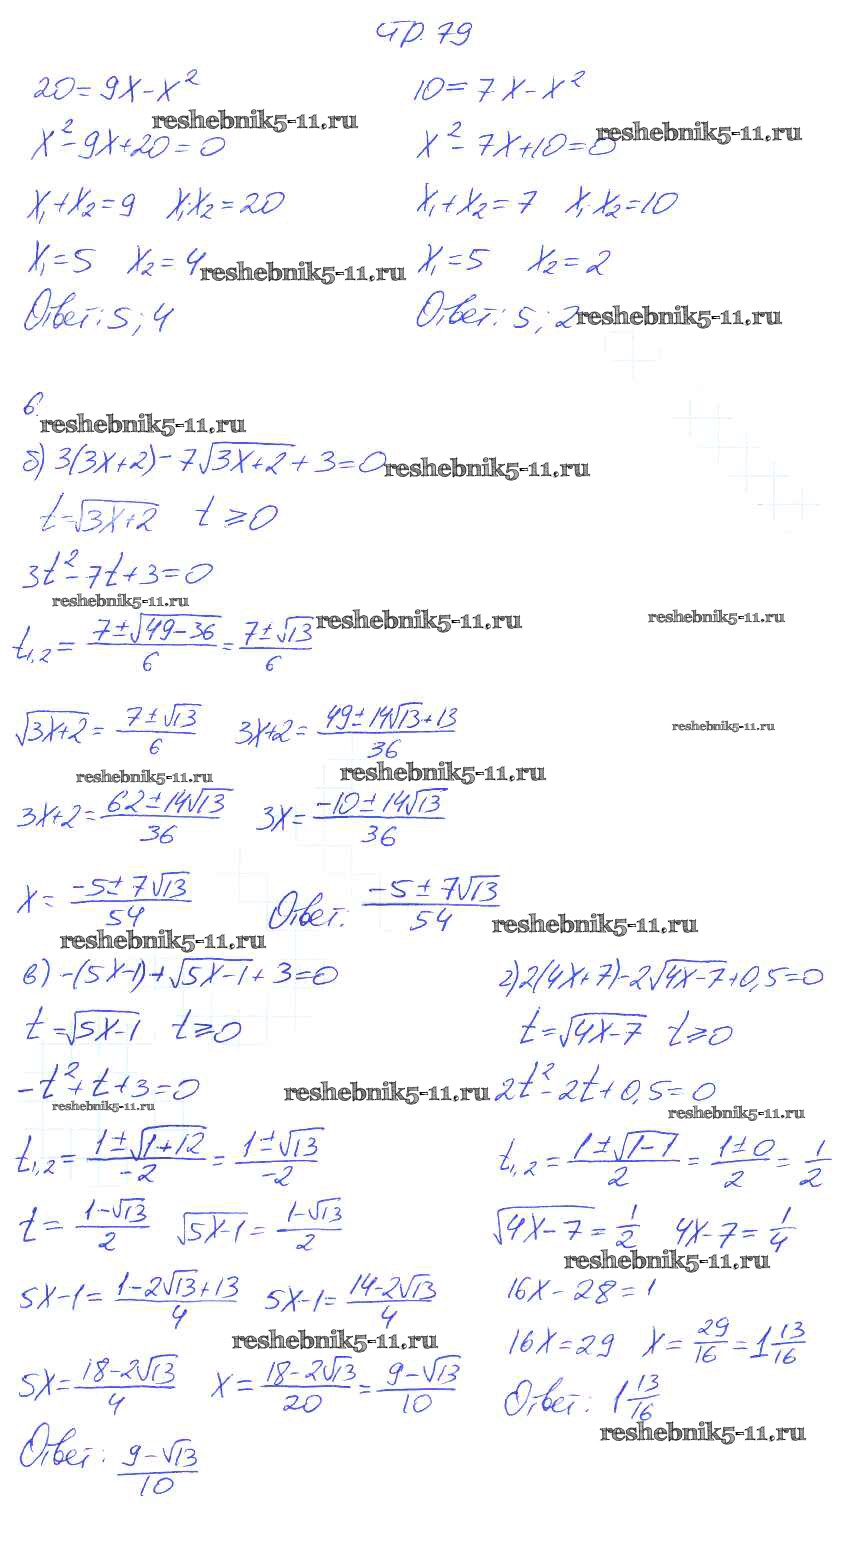 стр. 79
20=9x-x²
reshebnik5-11.ru
x²-9x+20=0
x₁+x₂=9 x₁·x₂=20
x₁=5 x₂=4
reshebnik5-11.ru
Ответ: 5; 4
10=7x-x²
reshebnik5-11.ru
x²-7x+10=0
x₁+x₂=7 x₁·x₂=10
x₁=5 x₂=2
Ответ: 5; 2
reshebnik5-11.ru
6.
reshebnik5-11.ru
б) 3(3x+2)-7√(3x+2)+3=0
reshebnik5-11.ru
t=√(3x+2) t≥0
3t²-7t+3=0
reshebnik5-11.ru
t₁,₂=(7±√(49-36))/6=(7±√13)/6
reshebnik5-11.ru
reshebnik5-11.ru
√(3x+2)=(7±√13)/6 3x+2=(49±14√13+13)/36
reshebnik5-11.ru
reshebnik5-11.ru
reshebnik5-11.ru
3x+2=(62±14√13)/36 3x=(-10±14√13)/36
x=(-5±7√13)/54 Ответ: (-5±7√13)/54
reshebnik5-11.ru
reshebnik5-11.ru
в) -(5x-1)+√(5x-1)+3=0
t=√(5x-1) t≥0
-t²+t+3=0
reshebnik5-11.ru
reshebnik5-11.ru
t₁,₂=(1±√(1+12))/-2=(1±√13)/-2
t=(1-√13)/2 √(5x-1)=(1-√13)/2
5x-1=(1-2√13+13)/4 5x-1=(14-2√13)/4
reshebnik5-11.ru
5x=(18-2√13)/4 x=(18-2√13)/20=(9-√13)/10
Ответ: (9-√13)/10
г) 2(4x+7)-2√(4x-7)+0,5=0
t=√(4x-7) t≥0
2t²-2t+0,5=0
reshebnik5-11.ru
t₁,₂=(1±√(1-1))/2=(1±0)/2=1/2
√(4x-7)=1/2 4x-7=1/4
reshebnik5-11.ru
16x-28=1
16x=29 x=29/16=1 13/16
Ответ: 1 13/16
reshebnik5-11.ru